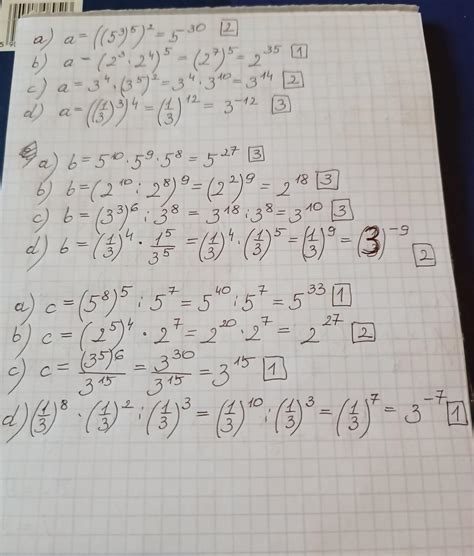 a) a = ((5³)⁵)² = 5⁻³⁰ [2]
b) a = (2³ · 2⁴)⁵ = (2⁷)⁵ = 2³⁵ [1]
c) a = 3⁴ · (3⁵)² = 3⁴ · 3¹⁰ = 3¹⁴ [2]
d) a = ((1/3)³)⁴ = (1/3)¹² = 3⁻¹² [3]
a) b = 5¹⁰ · 5⁹ · 5⁸ = 5²⁷ [3]
b) b = (2¹⁰ : 2⁸)⁹ = (2²)⁹ = 2¹⁸ [3]
c) b = (3³)⁶ : 3⁸ = 3¹⁸ : 3⁸ = 3¹⁰ [3]
d) b = (1/3)⁴ · 1⁵/3⁵ = (1/3)⁴ · (1/3)⁵ = (1/3)⁹ = (3)⁻⁹ [2]
a) c = (5⁸)⁵ : 5⁷ = 5⁴⁰ : 5⁷ = 5³³ [1]
b) c = (2⁵)⁴ · 2⁷ = 2²⁰ · 2⁷ = 2²⁷ [2]
c) c = (3⁵)⁶/3¹⁵ = 3³⁰/3¹⁵ = 3¹⁵ [1]
d) (1/3)⁸ · (1/3)² : (1/3)³ = (1/3)¹⁰ : (1/3)³ = (1/3)⁷ = 3⁻⁷ [1]